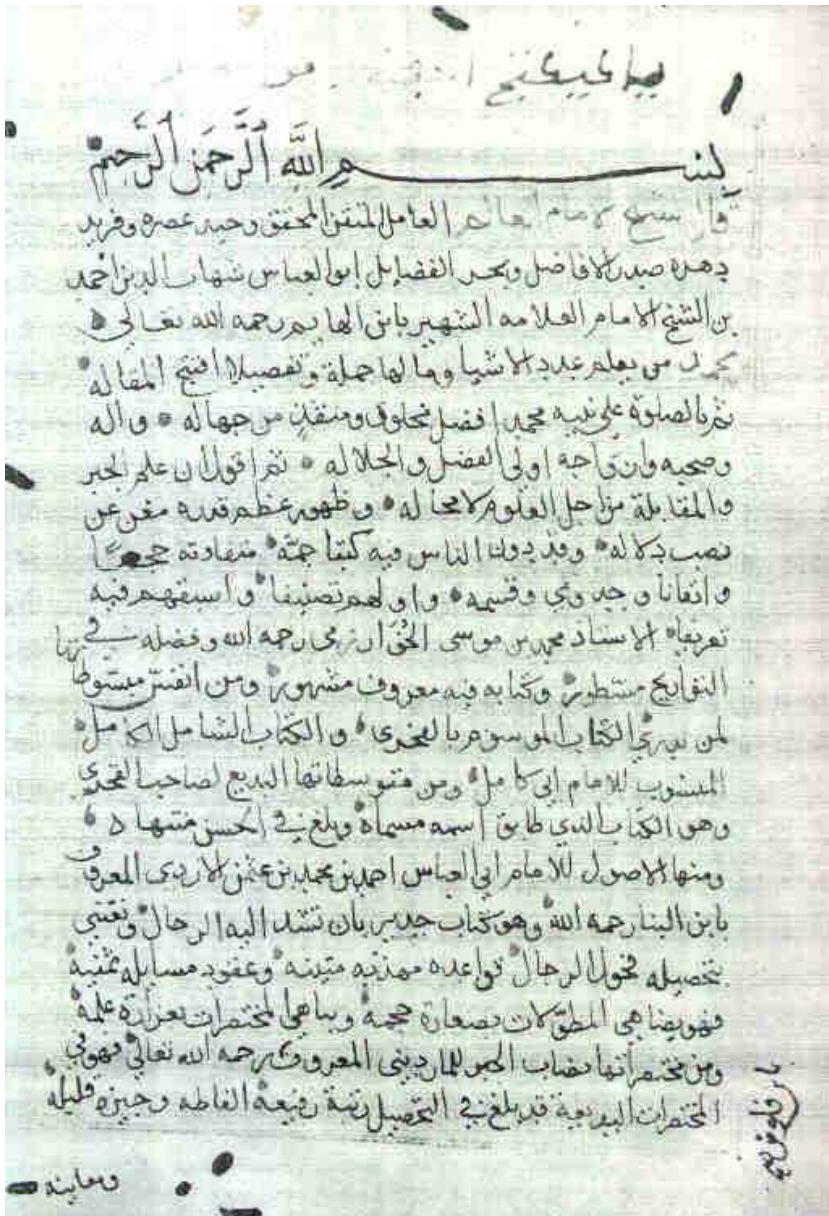 بســم الله الرحمن الرحيم
قال الشيخ الامام العالم العامل المتقن المحقق وحيد عصره وفريد
دهره صدر الافاضل وبحر الفضايل ابو العباس شهاب الدين احمد
بن الشيخ الامام العلامه الشهير بابن الهايم رحمه الله تعالى
بحمد من يعلم عدد الاشيا ومالها جملة وتفصيلا افتتح المقاله
ثم بالصلوة على نبيه محمد افضل مخلوق ومنقذ من جهاله واله
وصحبه وازواجه اولي الفضل والجلاله ثم اقول ان علم الجبر
والمقابلة من اجل العلوم لا محاله وظهور عظم قدره مغن عن
نصب دلاله وقد دون الناس فيه كتبا جمة متفاوتة حجما
واتقانا وجدوي وقسمه واولهم تصنيفا واسبقهم فيه
تعريفا الاستاذ محمد بن موسى الخوارزمي رحمه الله وفضله في
التواريخ مسطور وكتابه فيه معروف مشهور ومن مبسوطا
تها
الكتاب الموسوم بالفخري والكتاب الشامل الكامل
المنسوب للامام ابي كامل ومن متوسطاتها البديع لصاحب الفخري
وهو الكتاب الذي طابق اسمه مسماه وبلغ في الحسن منتهاه
ومنها الاصول للامام ابي العباس احمد بن محمد بن عثمن الازدي المعروف
بابن البنا رحمه الله وهو كتاب جدير بان تشد اليه الرحال وتعتني
بتحصيله فحول الرجال قواعده مهذبه متينه وعقود مسايله ثمينة
فهو يضاهي المطولات بصغارة حجمه ويباهي المختصرات بغزارة علمه
ومن مختصراتها نصاب الحبر للمارديني المعروف رحمه الله تعالى فهو في
المختصرات البديعة قد بلغ في التحصيل رتبة رفيعة الفاظه وجيزه قليله
ومعاينه